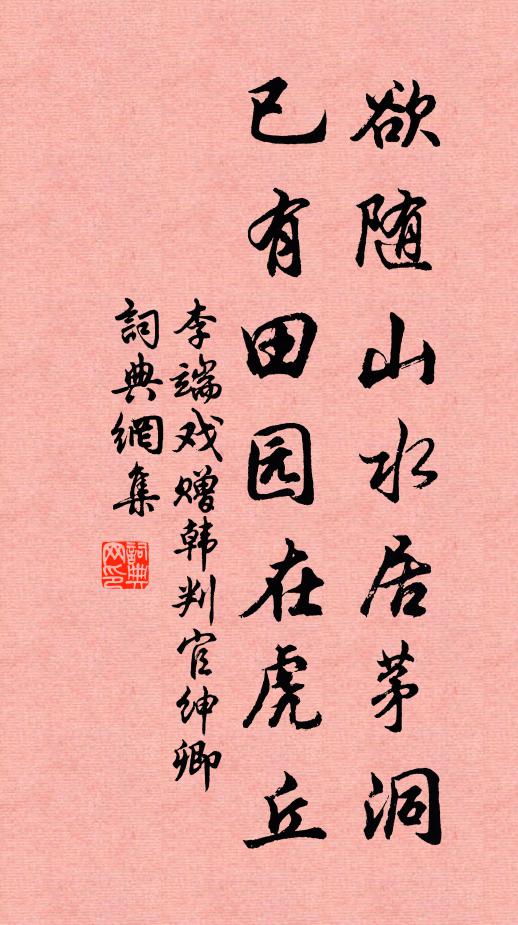 欲随山水居茅洞
已有田园在虎丘
李端戏赠韩判官绅卿
詞典網集
詞典網印